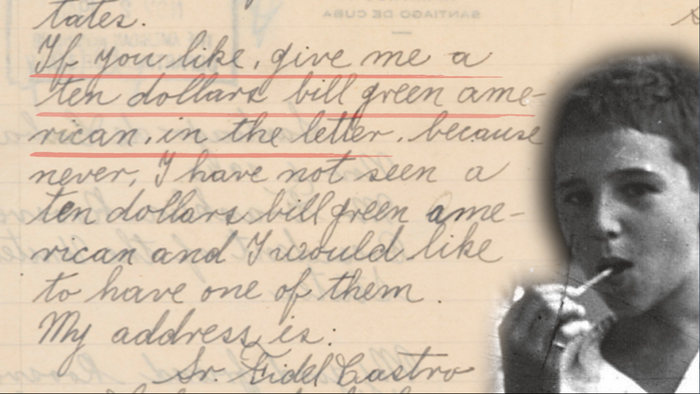 tates.
SANTIAGO DE CUBA
If you like, give me a
ten dollars bill green ame-
rican, in the letter, because
never, I have not seen a
ten dollars bill green ame-
rican and I would like
to have one of them.
My address is:
Sr. Fidel Castro